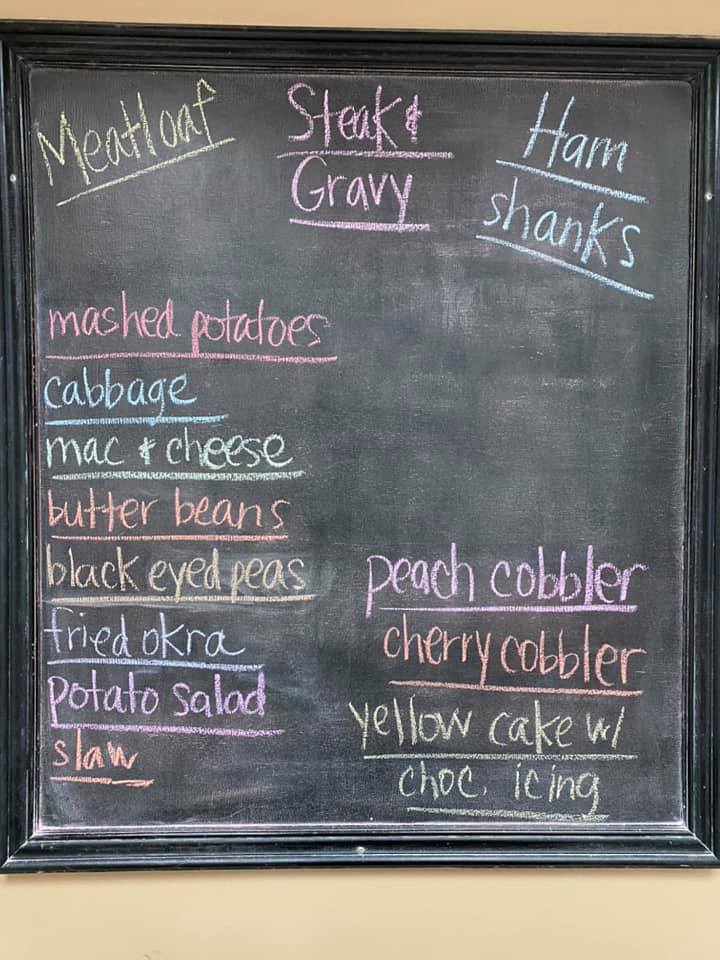 Meatloaf
Steak &
Gravy
Ham
shanks
mashed potatoes
cabbage
mac & cheese
butter beans
black eyed peas
fried okra
potato salad
slaw
peach cobbler
cherry cobbler
yellow cake w/
choc. icing